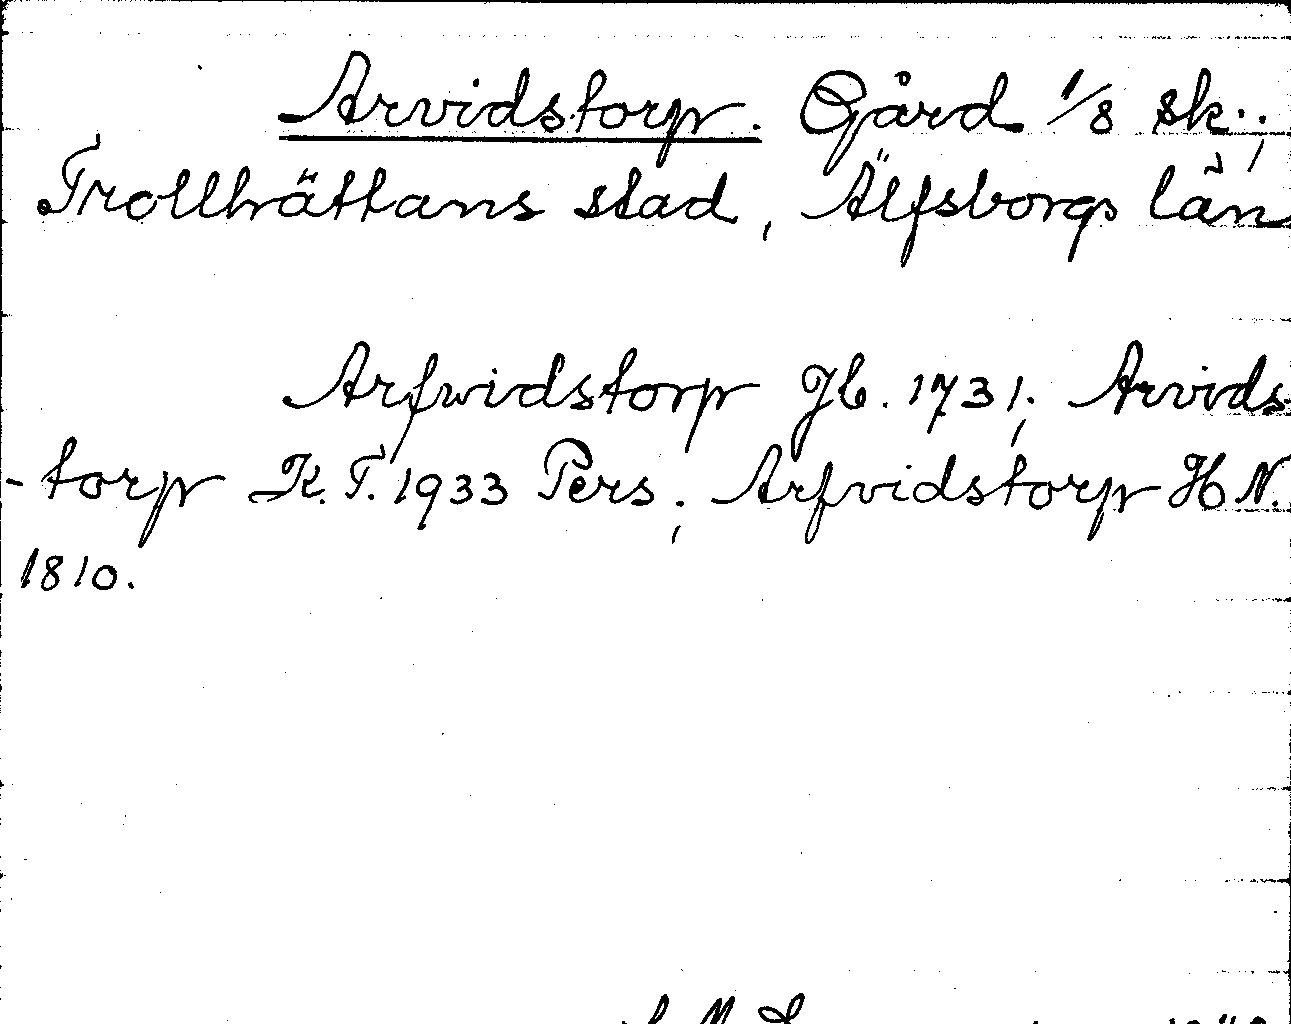 Arvidstorp. Gård 1/8 sk.;
Trollhättans stad, Älfsborgs län
Arfwidstorp Jb. 1731; Arvids
-torp K.T. 1933 Pers; Arfvidstorp H N.
1810.